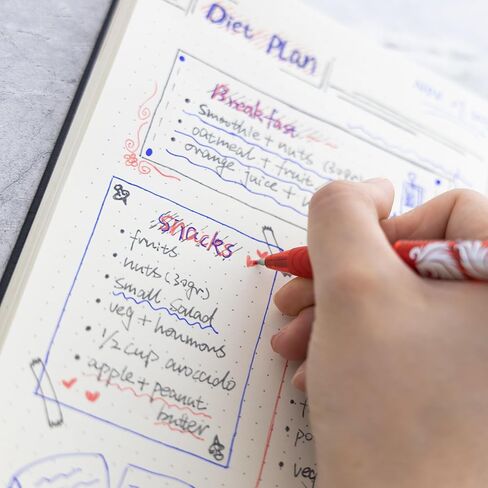 Diet Plan
Breakfast
• smoothie + nuts (30gr)
• oatmeal + fruit
• orange juice +
snacks
• fruits
• nuts (30gr)
• small salad
• veg + hommons
• 1/2 cup avoccido
• apple + peanut
buter
• veg